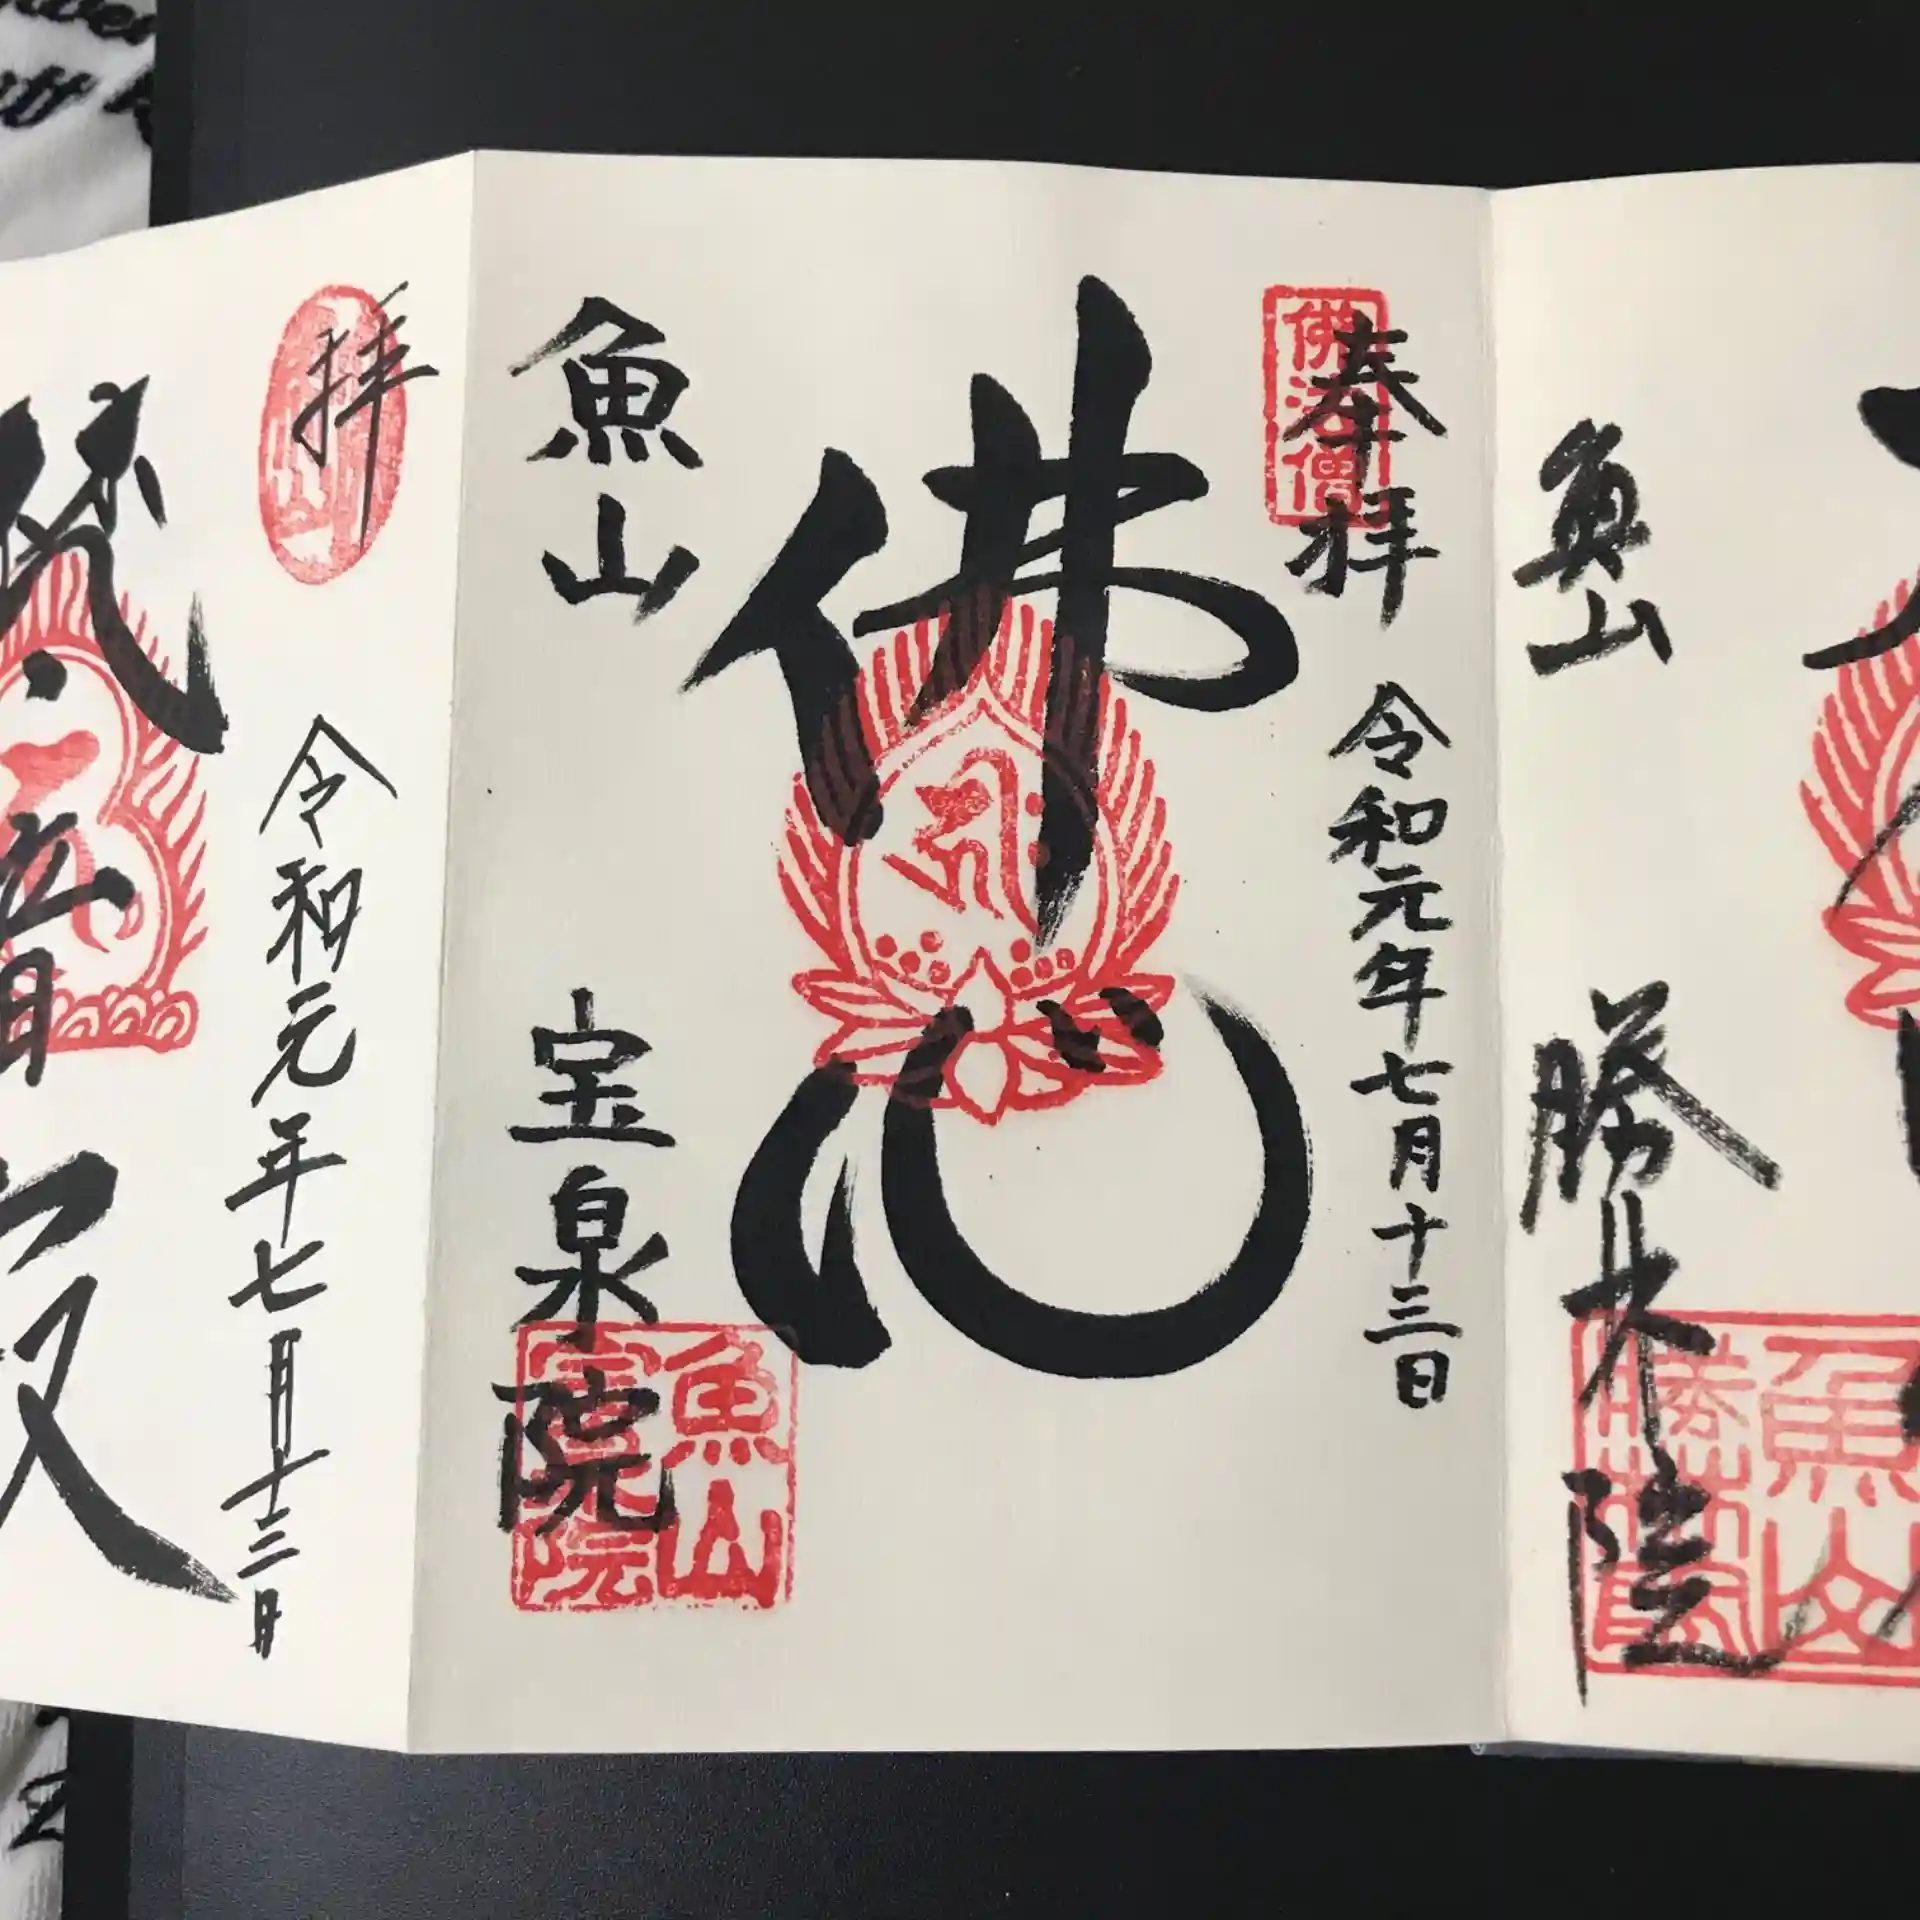 奉拝
令和元年七月十三日
佛心
魚山
宝泉院
佛法僧
魚山
院
拝
令和元年七月十三日
魚山
勝林院
魚山
勝林